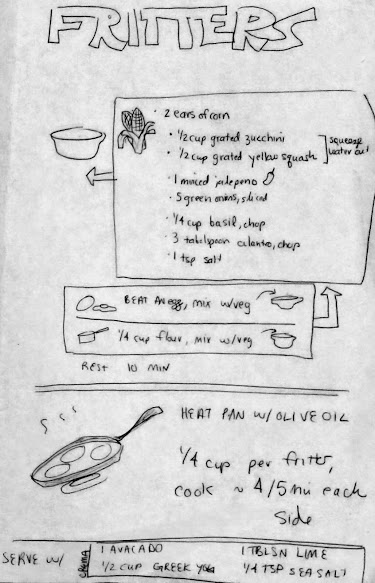 FRITTERS
· 2 ears of corn
· 1/2 cup grated zucchini
· 1/2 cup grated yellow squash
squeeze
water out
· 1 minced jalepeno
· 5 green onins, sliced
· 1/4 cup basil, chop
· 3 tablspoon cilantro, chop
· 1 tsp salt
BEAT AN egg, mix w/veg
1/4 cup flour, mix w/veg
REST 10 MIN
HEAT PAN W/ OLIVE OIL
1/4 cup per fritter,
cook ~ 4/5 min each
side
SERVE W/
CREMA
1 AVACADO
1/2 CUP GREEK YOG
1 TBLSN LIME
1/4 TSP SEA SALT